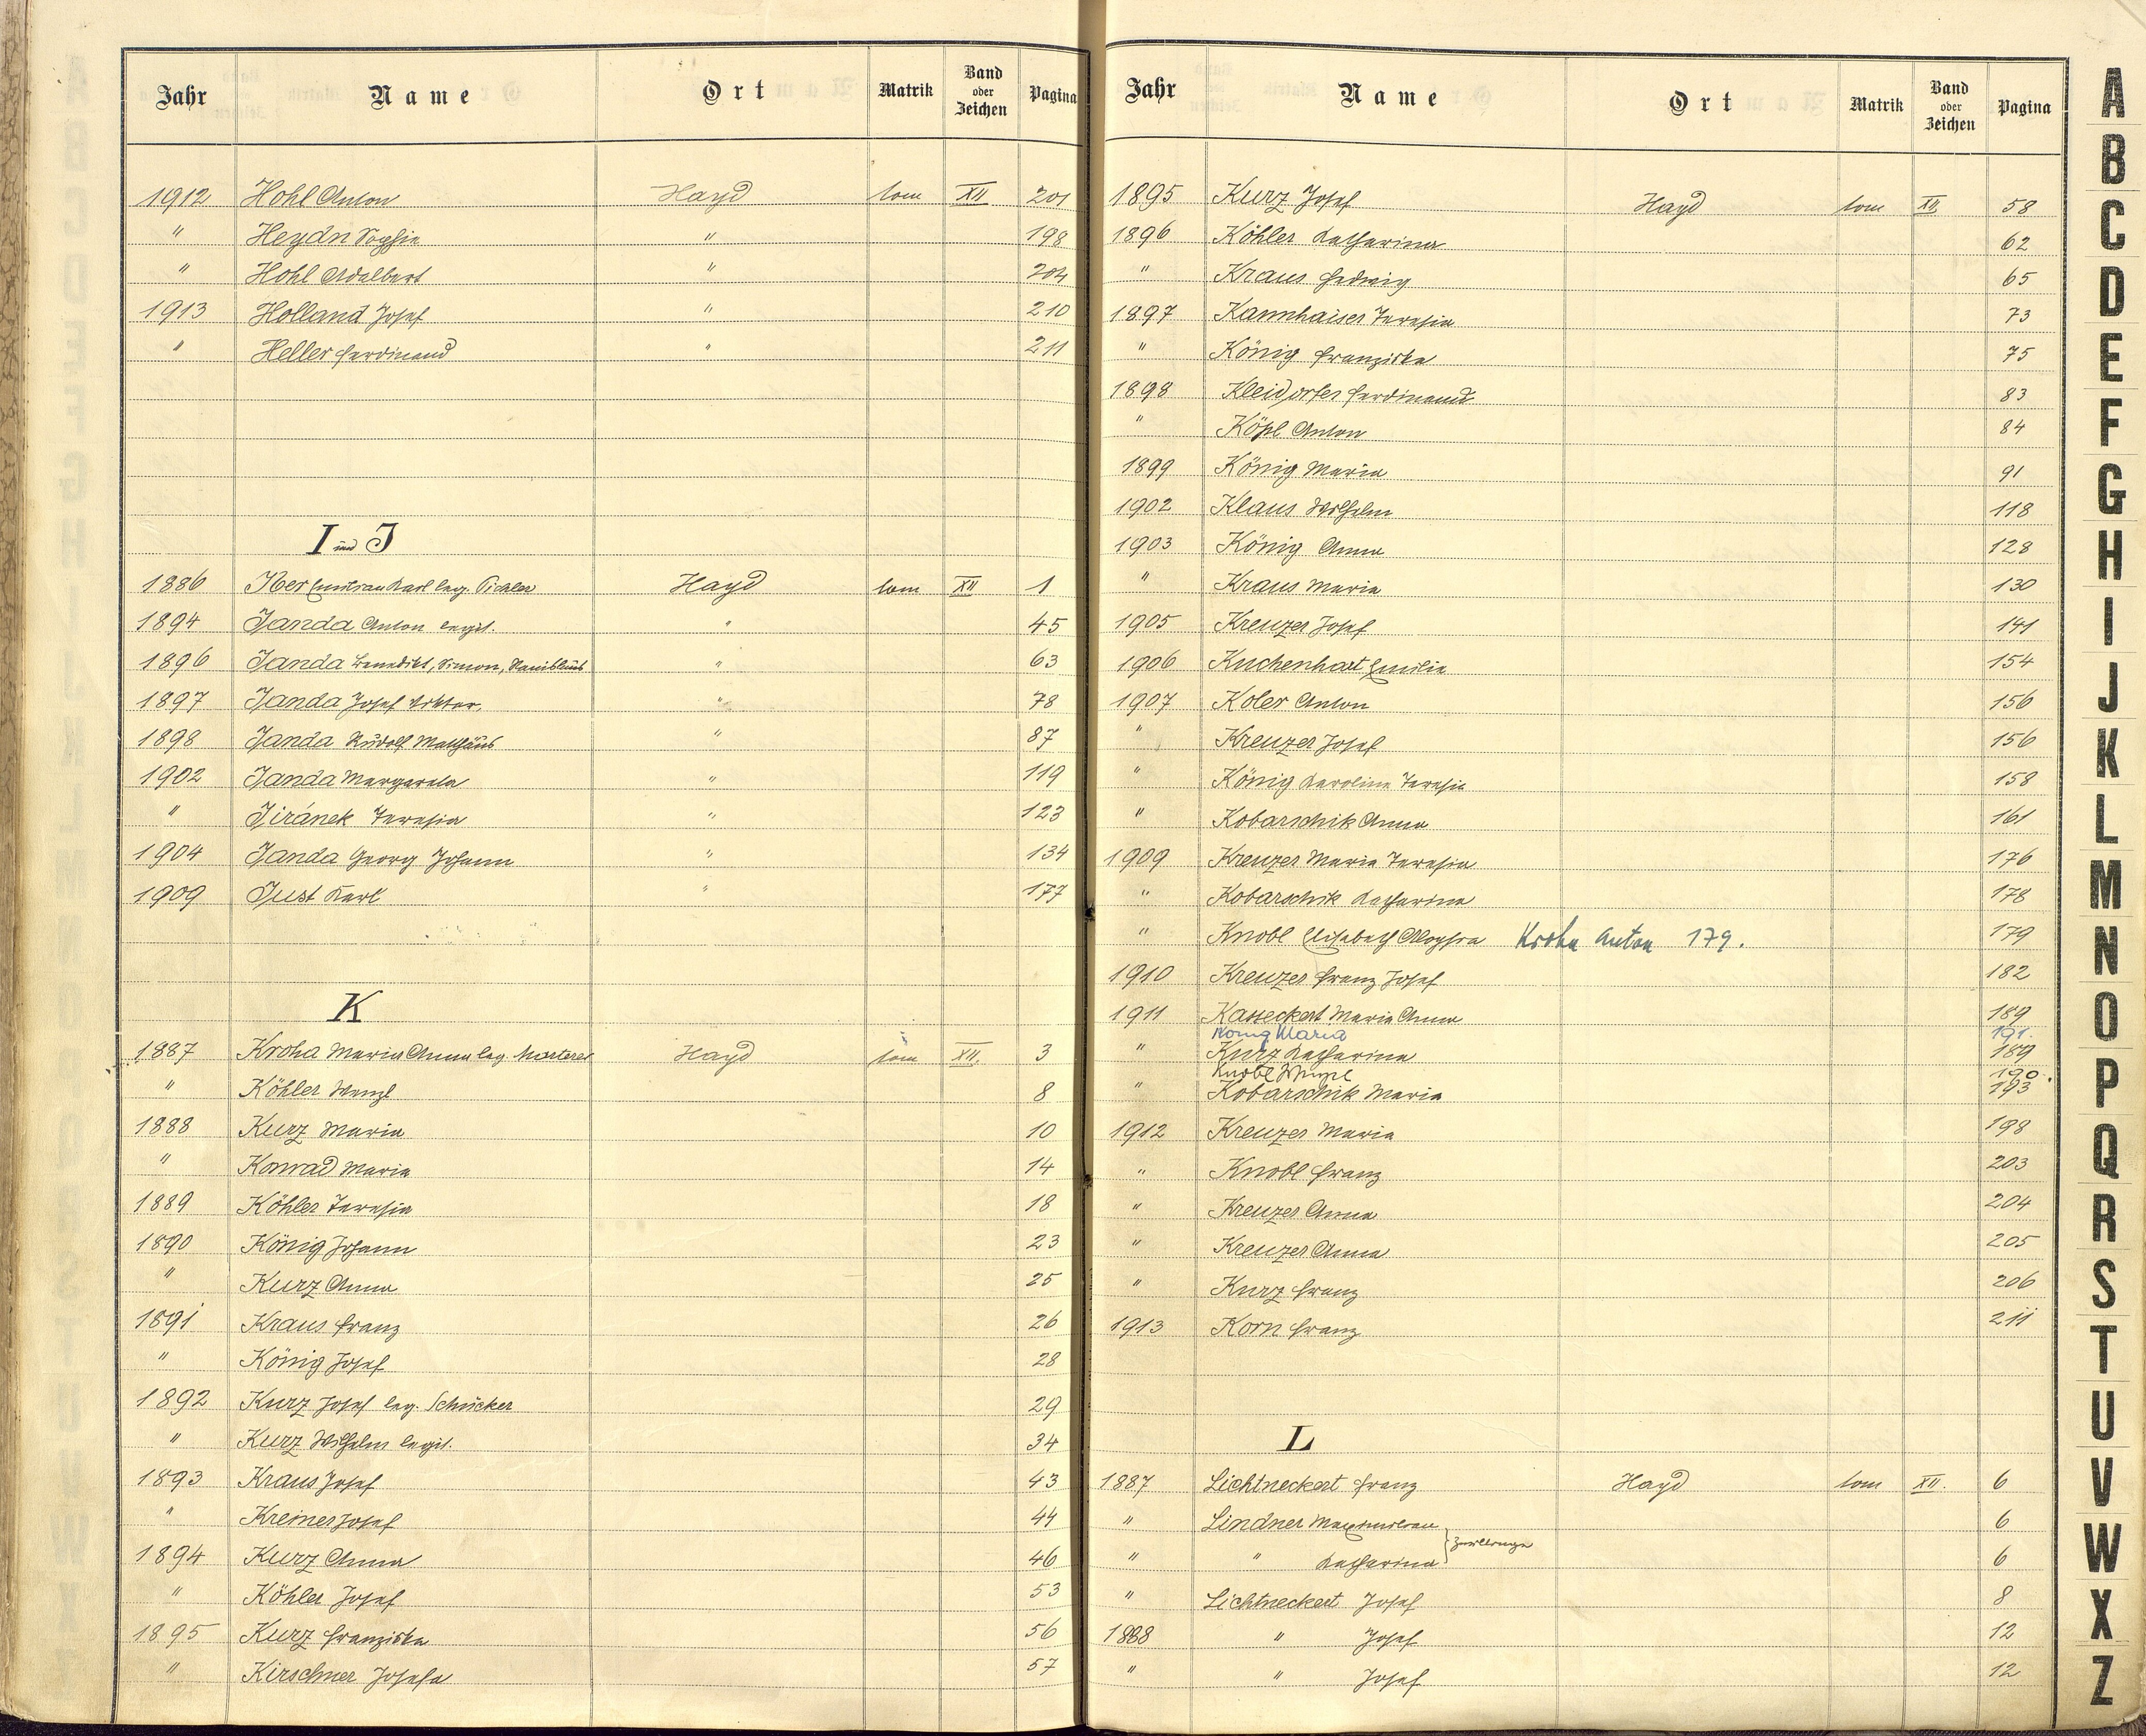 Jahr Name Ort Matrik Band oder Zeichen Pagina
1912 Hohl Anton Hayd tom XII 201
" Heydn Sophie " 198
" Hohl Adalbert " 204
1913 Holland Josef " 210
" Heller Ferdinand " 211
I und J
1886 Karl leg. Pichler Hayd tom XII 1
1894 Janda Anton legit. " 45
1896 Janda Benedikt, Simon, " 63
1897 Janda Josef Viktor, " 78
1898 Janda Rudolf Matthäus " 87
1902 Janda Margareta " 119
" Jiránek Teresia " 123
1904 Janda Georg Johann " 134
1909 Just Karl " 177
K
1887 Kroha Maria Anna leg. Hayd tom XII. 3
" Köhler Wenzl 8
1888 Kurz Maria 10
" Konrad Maria 14
1889 Köhler Teresia 18
1890 König Johann 23
" Kurz Anna 25
1891 Kraus Franz 26
" König Josef 28
1892 Kurz Josef leg. Schücker 29
" Kurz Wilhelm legit. 34
1893 Kraus Josef 43
" Kreiner Josef 44
1894 Kurz Anna 46
" Köhler Josef 53
1895 Kurz Franziska 56
" Kirschner Josefa 57
Jahr Name Ort Matrik Band oder Zeichen Pagina
1895 Kurz Josef Hayd tom XII 58
1896 Köhler Katharina 62
" Kraus Hedwig 65
1897 Kannhaiser Teresia 73
" König Franziska 75
1898 Kleidorfer Ferdinand 83
" Köpl Anton 84
1899 König Maria 91
1902 Klaus Wilhelm 118
1903 König Anna 128
" Kraus Maria 130
1905 Kreuzer Josef 141
1906 Kuchenhart Emilie 154
1907 Koler Anton 156
" Kreuzer Josef 156
" König Karolina Teresia 158
" Kobarschik Anna 161
1909 Kreuzer Maria Teresia 176
" Kobarschik Katharina 178
" Knobl Elisabeth Aloysia Kroha Anton 179. 179
1910 Kreuzer Franz Josef 182
1911 Kasseckert Maria Anna 189
König Maria 191.
" Kurz Katharina 189
Knobl 190.
" Kobarschik Maria 193
1912 Kreuzer Maria 198
" Knobl Franz 203
" Kreuzer Anna 204
" Kreuzer Anna 205
" Kurz Franz 206
1913 Korn Franz 211
L
1887 Lichtneckert Franz Hayd tom XII. 6
" Lindner Maximilian 6
Zwillinge
" " Katharina 6
" Lichtneckert Josef 8
1888 " Josef 12
" " Josef 12
A
B
C
D
E
F
G
H
I
J
K
L
M
N
O
P
Q
R
S
T
U
V
W
X
Z